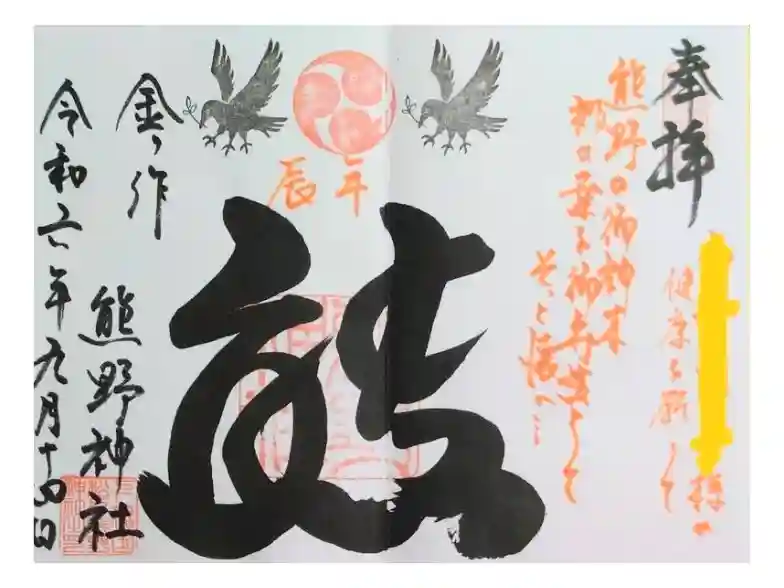 奉拝
様の
健康を願して
熊野の御神木
梛の葉を御守として
そっと懐へ…
辰年
金ヶ作
熊野神社
令和六年九月十四日